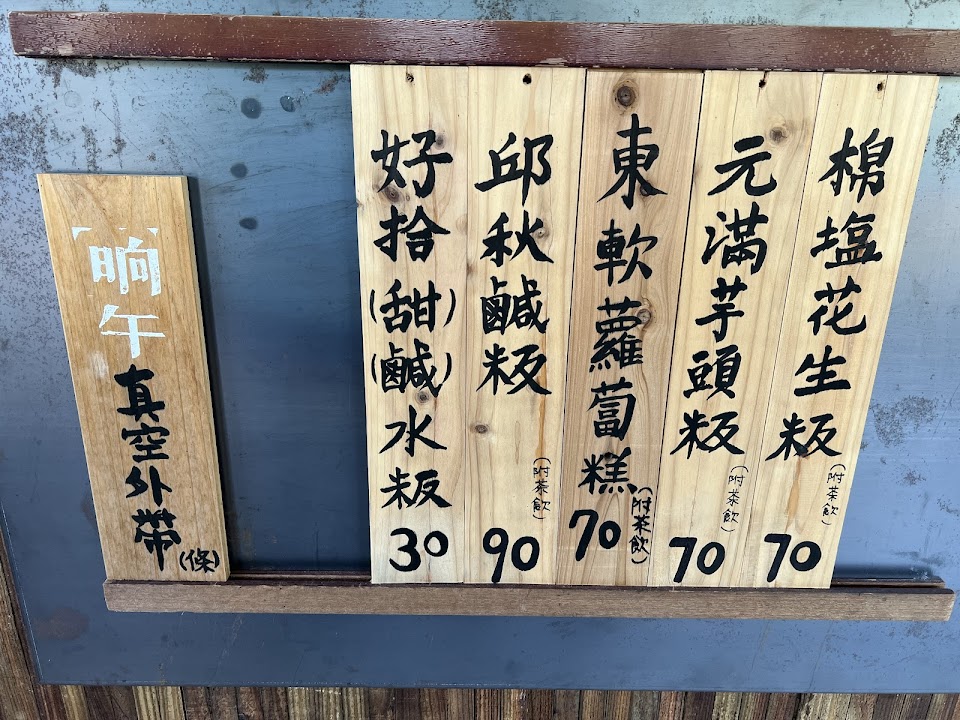 棉塩花生粄(附茶飲)70
元滿芋頭粄(附茶飲)70
東軟蘿蔔糕(附茶飲)70
邱秋鹹粄(附茶飲)90
好拾(甜)(鹹)水粄30
「晌午」真空外帶(條)